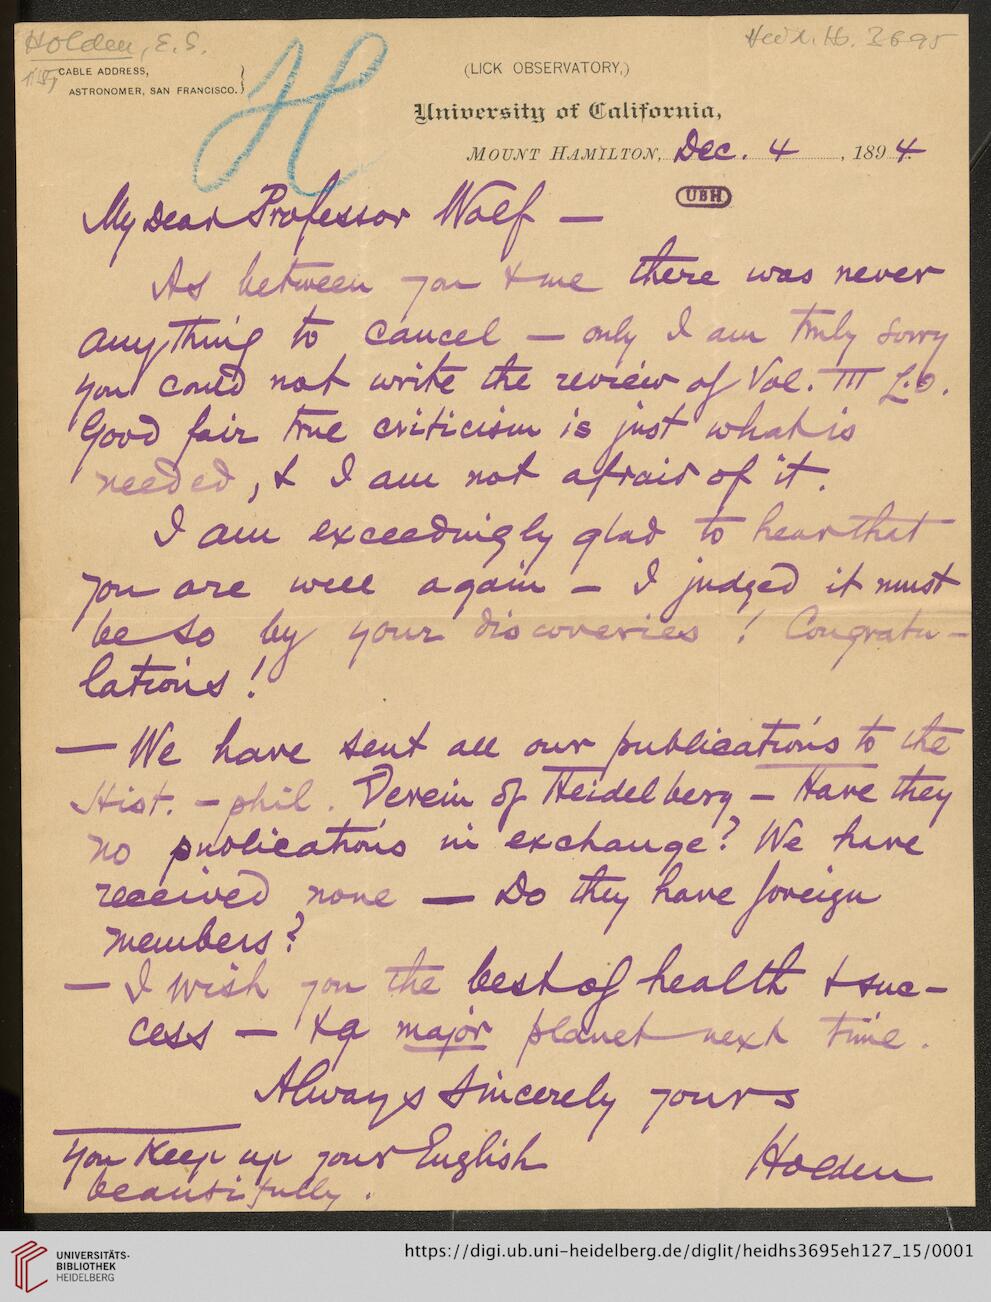 Holden, E. S.
Heid. Hs. 3695
CABLE ADDRESS,
ASTRONOMER, SAN FRANCISCO.
H
(LICK OBSERVATORY,)
University of California,
MOUNT HAMILTON, Dec. 4, 1894.
UBH
My dear Professor Wolf —
As between you & me there was never
anything to cancel — only I am truly sorry
you could not write the review of Vol. III L.O.
Good fair true criticism is just what is
needed, & I am not afraid of it.
I am exceedingly glad to hear that
you are well again — I judged it must
be so by your discoveries! Congratu-
lations!
— We have sent all our publications to the
Hist.-phil. Verein of Heidelberg — Have they
no publications in exchange? We have
received none — Do they have foreign
members?
— I wish you the best of health & suc-
cess — & a major planet next time.
Always sincerely yours
Holden
you keep up your English
beautifully.
UNIVERSITÄTS-
BIBLIOTHEK
HEIDELBERG
https://digi.ub.uni-heidelberg.de/diglit/heidhs3695eh127_15/0001